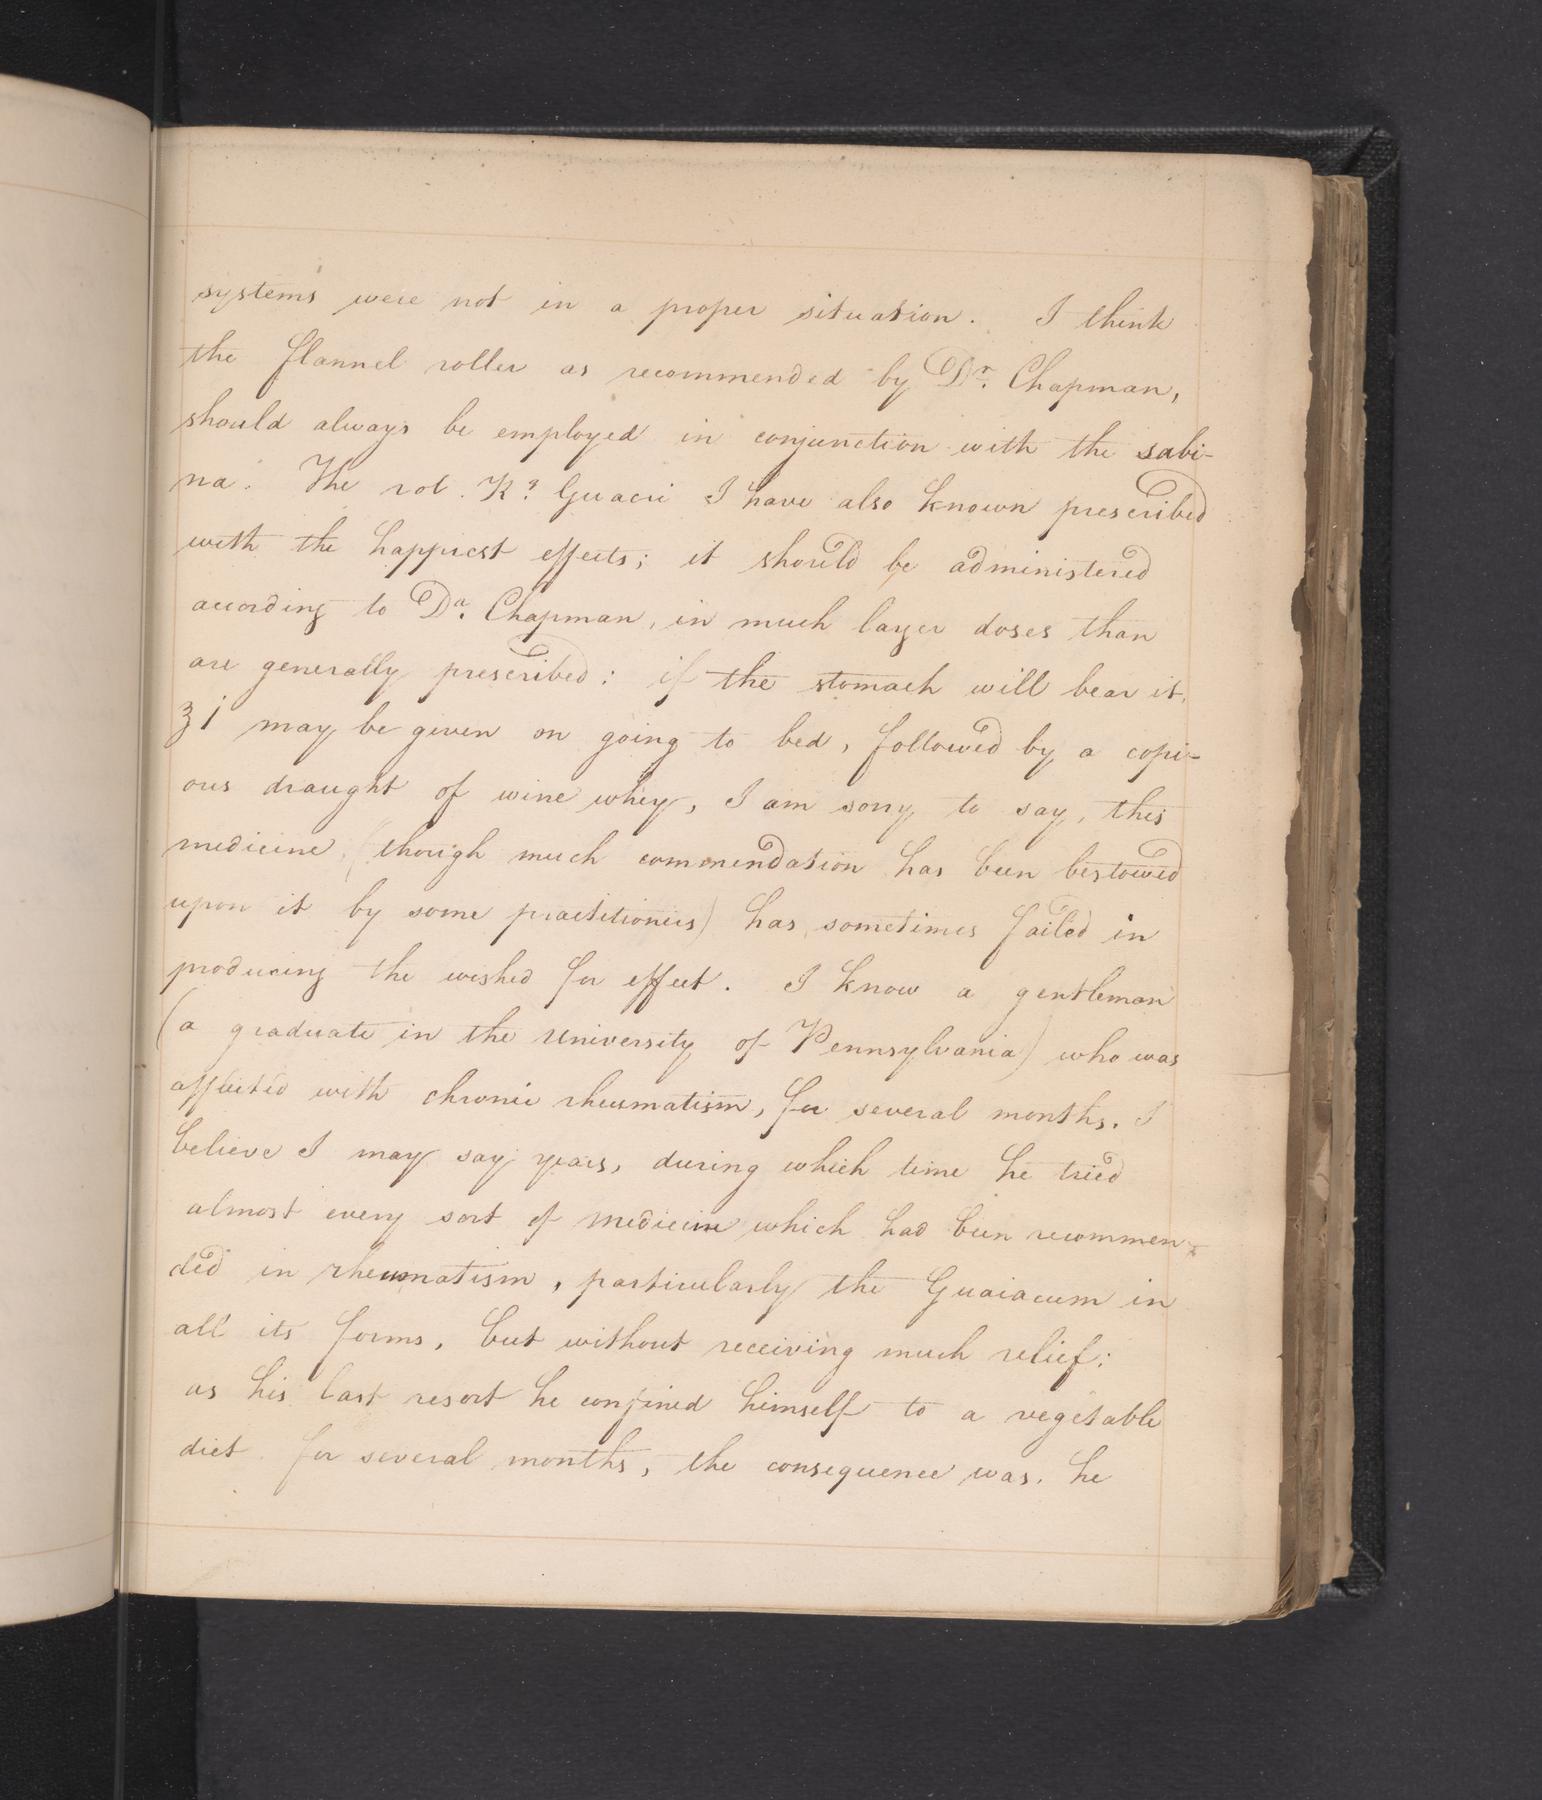 systems were not in a proper situation. I think
the flannel roller as recommended by Dr. Chapman,
should always be employed in conjunction with the sabi-
na. The vol. Guacii I have also known prescribed
with the happiest effects; it should be administered
according to Dr. Chapman, in much larger doses than
are generally prescribed: if the stomach will bear it,
ʒi may be given on going to bed, followed by a copi-
ous draught of wine whey, I am sorry to say, this
medicine, (though much commendation has been bestowed
upon it by some practitioners) has sometimes failed in
producing the wished for effect. I know a gentleman
(a graduate in the University of Pennsylvania) who was
afflicted with chronic rheumatism, for several months, I
believe I may say years, during which time he tried
almost every sort of medicine which had been recommen-
ded in rheumatism, particularly the Guaiacum in
all its forms, but without receiving much relief:
as his last resort he confined himself to a vegetable
diet for several months, the consequence was, he